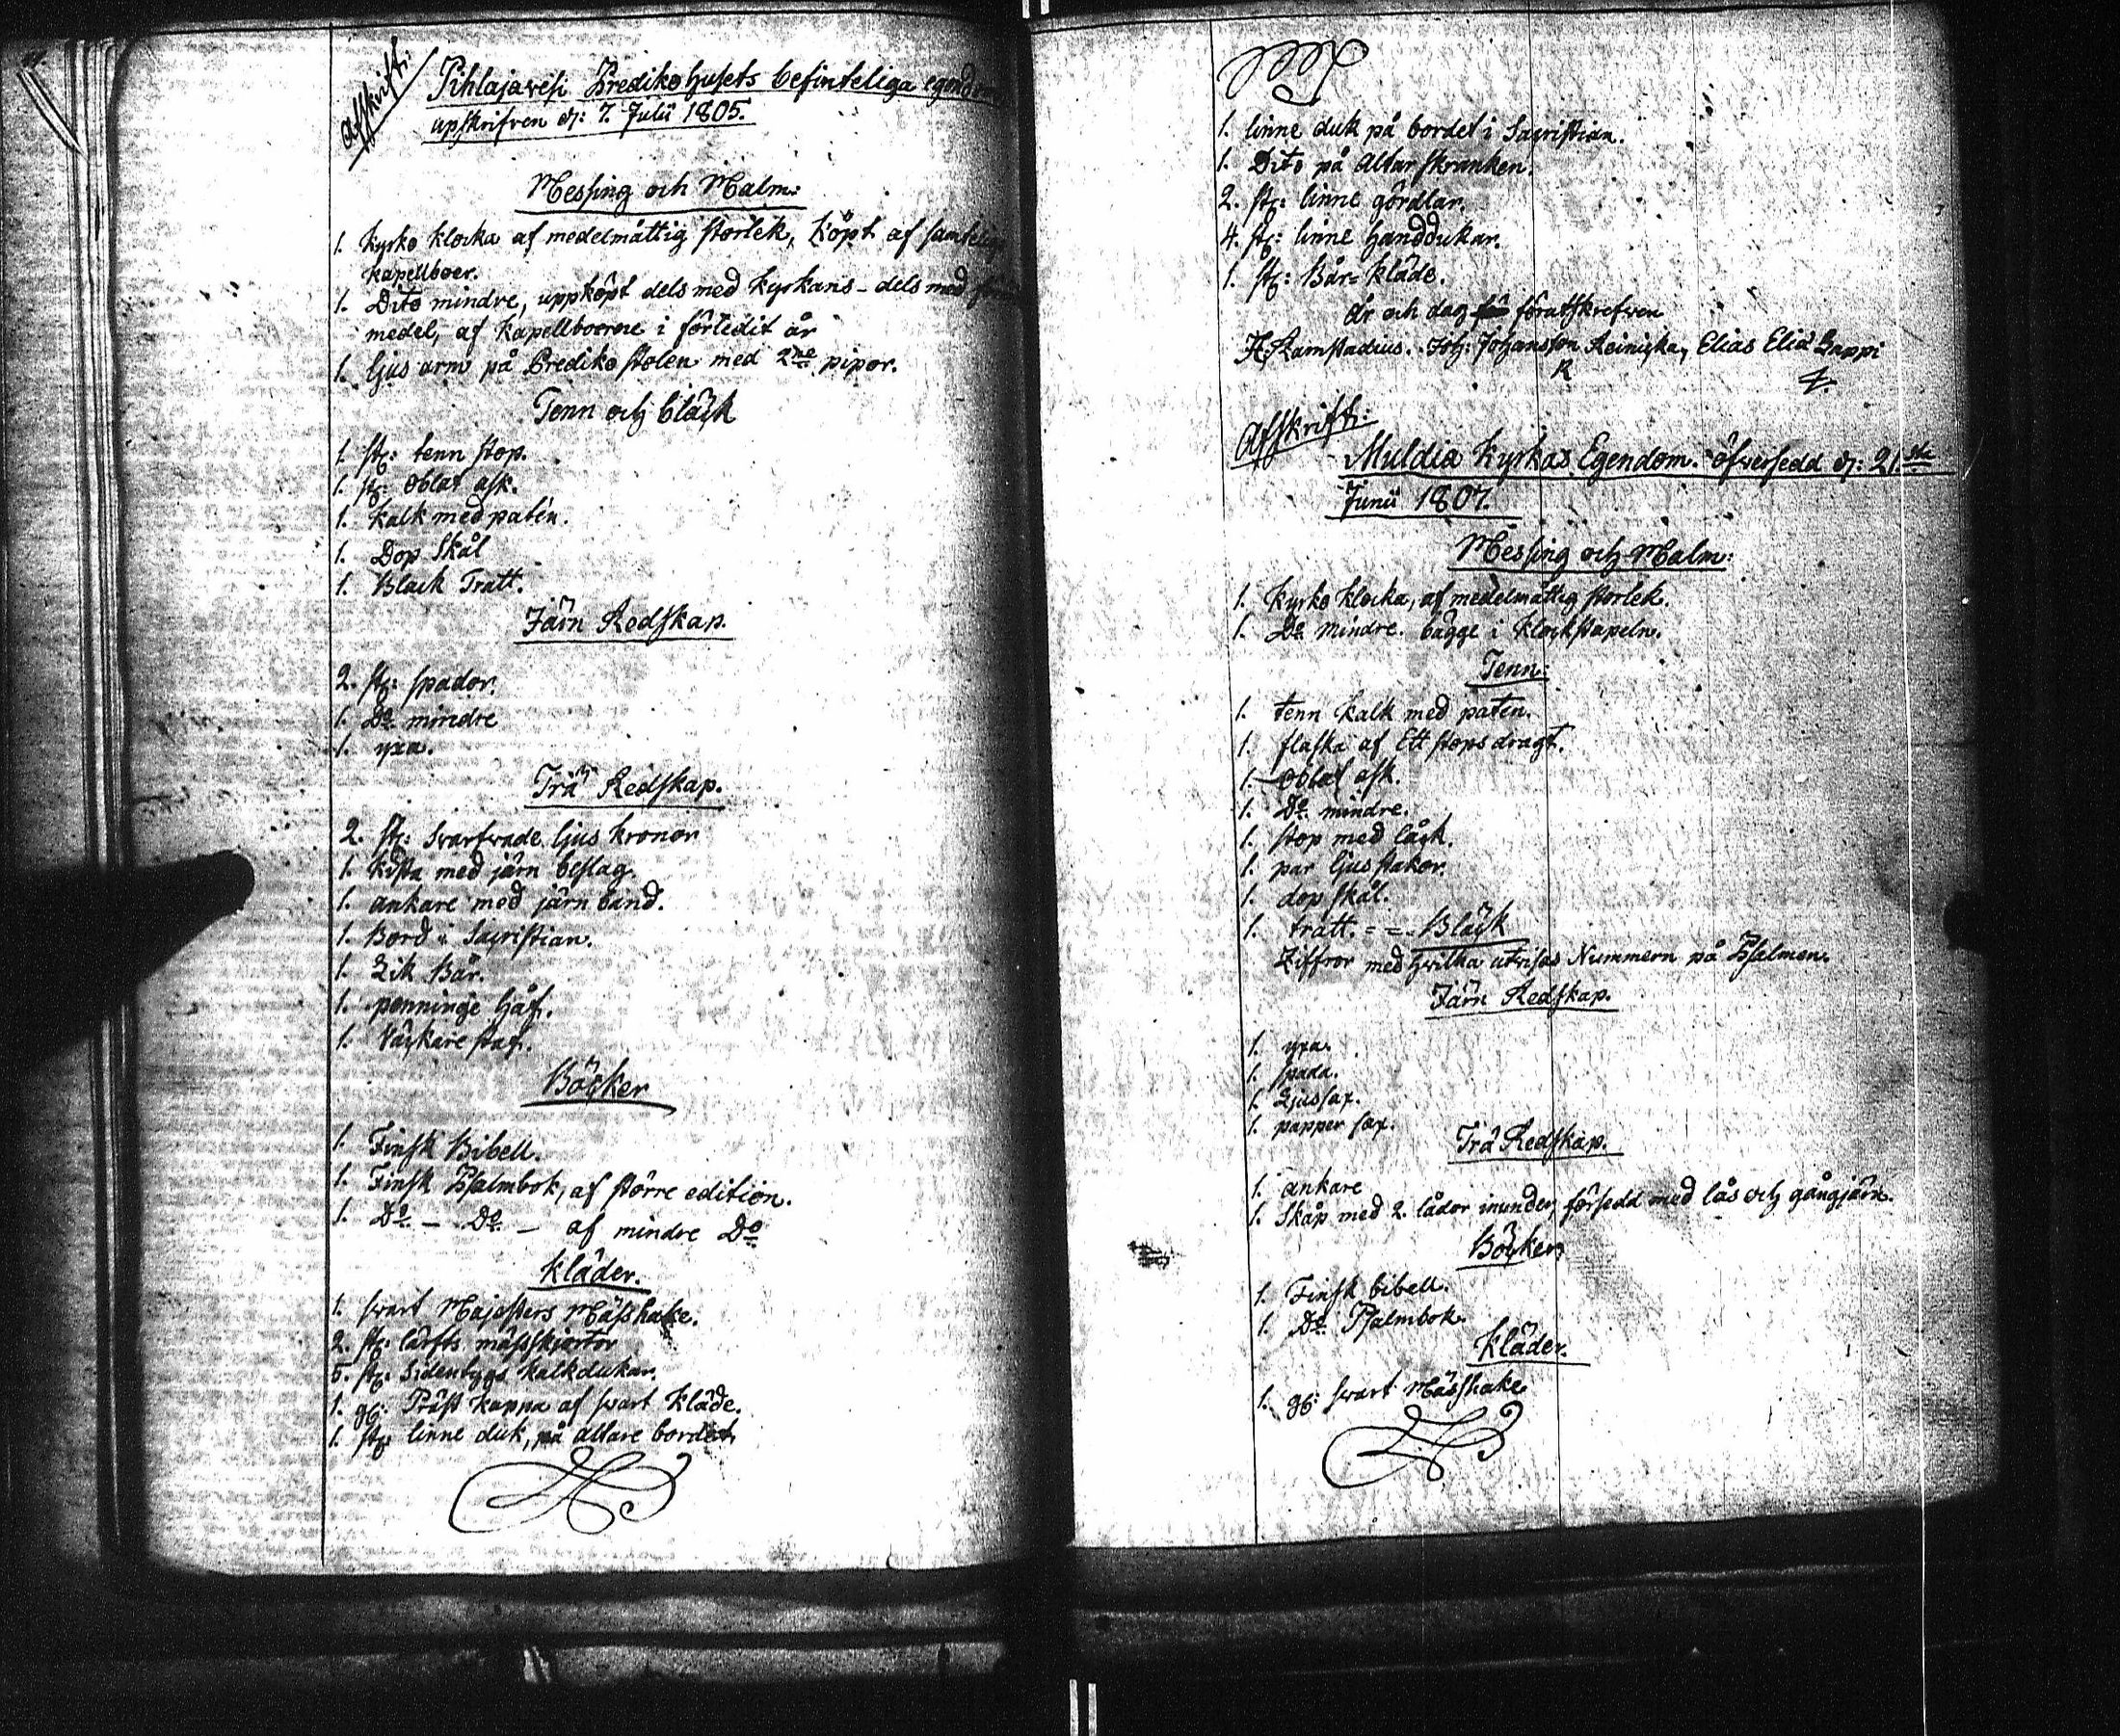 Afskrift:
Pihlajavesi Prediko husets befinteliga egendom
upskrifven d: 7. Julii 1805.
Messing och Malm:
1. Kyrko klocka af medelmåttig storlek, köpt af samtelige
kapellboer.
1. Dito mindre, uppköpt dels med Kyrkans - dels med
medel, af Kapellboerne i förledit år
1. ljus arm på Prediko stolen med 2ne pipor.
Tenn och bläck
1. st: tenn stop.
1. st: oblat ask.
1. Kalk med patén.
1. Dop Skål
1. Black Tratt.
Järn Redskap.
2. st: spador.
1. Do mindre
1. yxa.
Trä Redskap.
2. st: svarfvade ljus kronor
1. Kista med järn beslag.
1. ankare med järn band.
1. Bord i Sacristian.
1. Lik Bår.
1. penninge håf.
1. Väckare staf.
Böcker
1. Finsk Bibell.
1. Finsk Psalmbok, af större edition.
1. Do - Do - af mindre Do
Kläder.
1. svart Mässhake.
2. st: lärfts mässskjortor
5. st: sidentygs kalkdukar.
1. st: Präst kappa af svart kläde.
1. st: linne duk, på altare bordet
1. linne duk på bordet i Sacristian.
1. Dito på Altar skranken.
2. st: linne gördlar.
4. st: linne handdukar.
1. st: Bår-kläde.
år och dag förutskrefven
H. Ramstadius. Joh: Johansson Reinicka, Elias Elia Lappi
R
Afskrift:
Muldia Kyrkas Egendom. öfversedd d: 21sta
Junii 1807.
Messing och Malm:
1. Kyrko klocka, af medelmåttig storlek.
1. Do mindre. bägge i klockstapeln.
Tenn:
1. tenn Kalk med patén.
1. flaska af Ett stops dragt.
1. Oblat ask.
1. Do mindre.
1. stop med låck.
1. par ljus stakar.
1. dop skål.
1. tratt. = = Bläck
Ziffror med hvilka utvisas Nummern på Psalmen.
Järn Redskap.
1. yxa.
1. spada.
1. Ljussax.
1. papper sax.
Trä Redskap.
1. ankare
1. Skåp med 2. lådor inunder, försedd med lås och gångjärn.
Böcker
1. Finsk bibell.
1. Do Psalmbok.
Kläder.
1. st: svart Mässhake